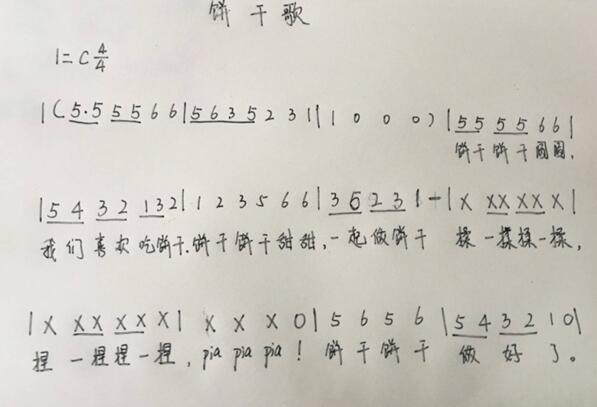 饼干歌
1=C 4/4
|(5·5 5 5 6 6|5 6 3 5 2 3 1||1 0 0 0)|5 5 5 5 6 6|
饼干饼干圆圆,
|5 4 3 2 1 3 2|1 2 3 5 6 6|3 5 2 3 1 -|X XX XX X|
我们喜欢吃饼干.饼干饼干甜甜,一起做饼干 揉一揉揉一揉,
|X XX XX X|X X X 0|5 6 5 6|5 4 3 2 1 0|
捏一捏捏一捏,pia pia pia!饼干饼干 做好了。